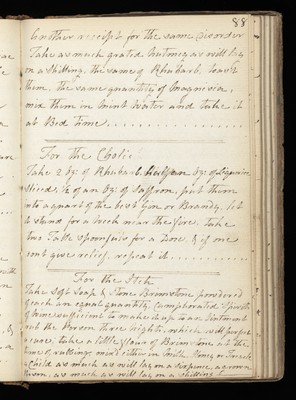 88
Another receipt for the same Disorder
Take as much grated Nutmeg as will lay
on a shilling, the same of Rhubarb,
them, the same quantity of Magnesia,
mix them in Mint Water and take it
at Bed Time
For the Cholic
Take 2 oz: of Rhubarb, oz: of
sliced, 1/2 of an oz: of Saffron, put them
into a quart of the best Gin or Brandy, let
it stand for a Week near the fire, take
two Table spoonfuls for a Dose, & if one
dont give relief, repeat it
For the Itch
Take Soft Soap, & Stone Brimstone powdered
of each an equal quantity, Camphorated Spirits
of Wine sufficient to make it up to an Ointment
rub the Person three Nights, which will perfect
a cure, take a little flour of Brimstone at the
time of rubbing, mixed either in Milk, Honey, or Treacle
a Child as much as will lay on a sixpence, a grown
Person, as much as will lay on a shilling